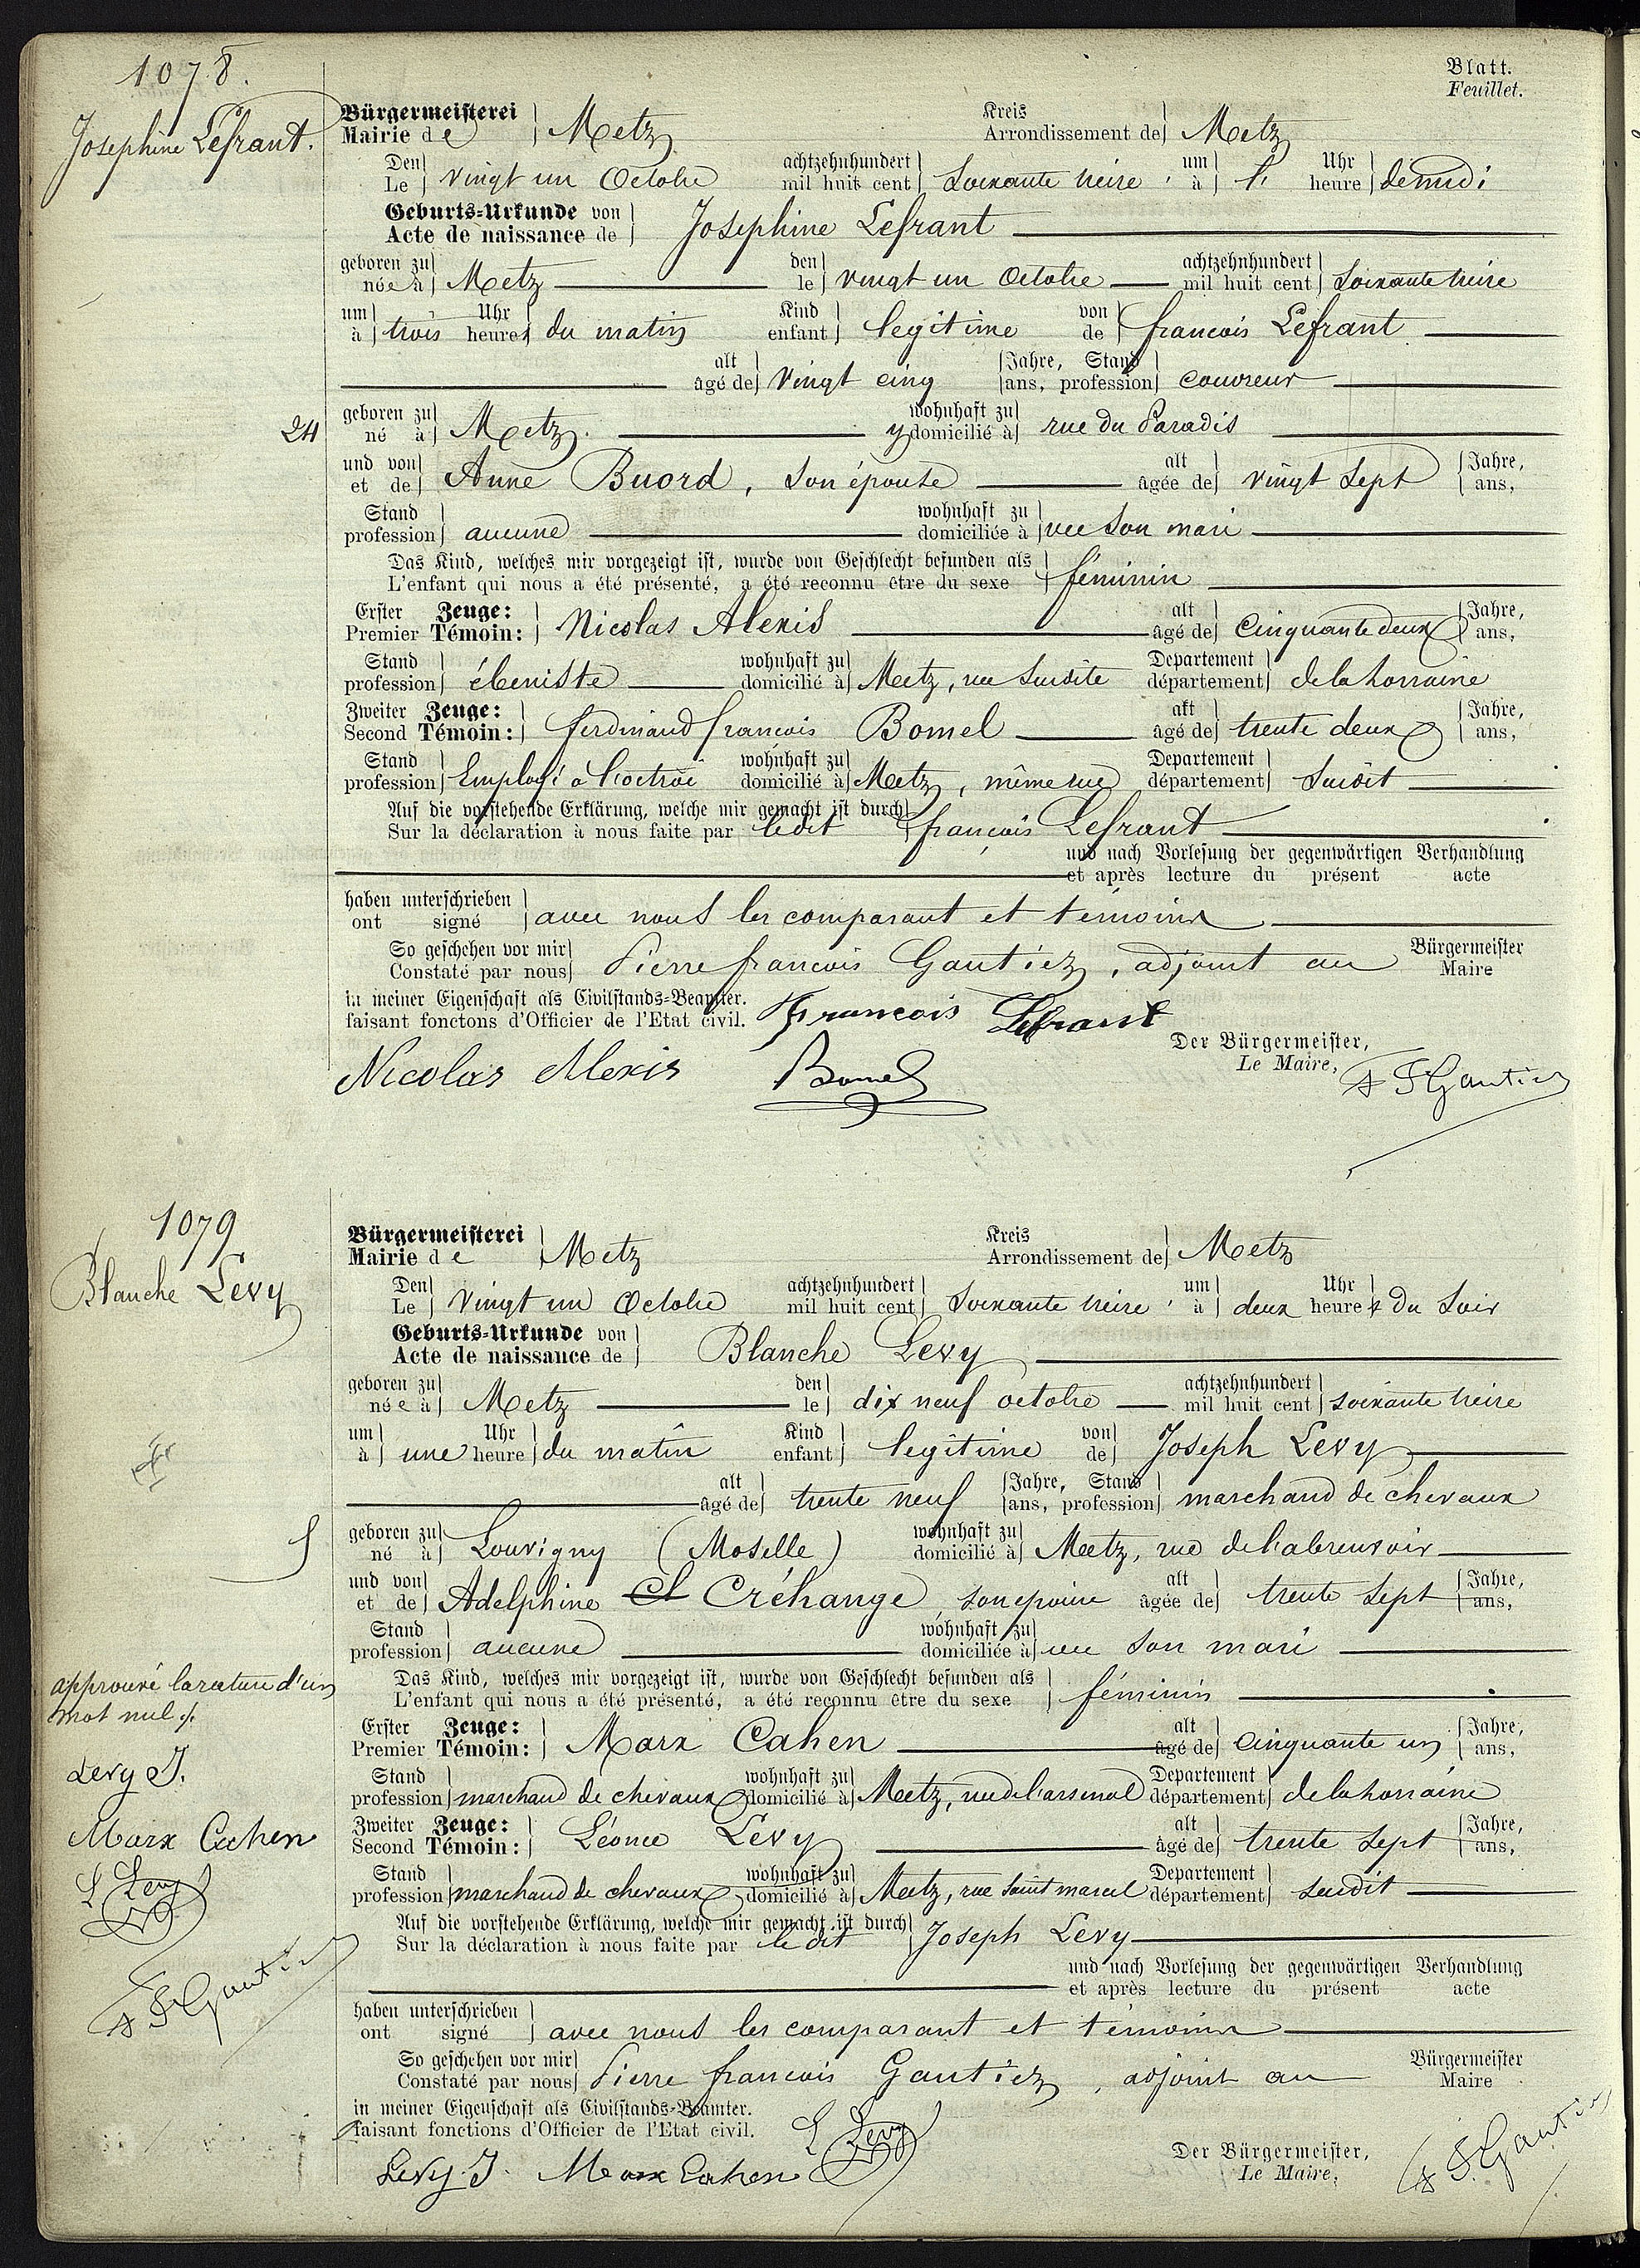 Blatt.
Feuillet.
1078.
Josephine Lefrant.
Bürgermeisterei Kreis
Mairie de Metz Arrondissement de Metz
Den achtzehnhundert um Uhr
Le vingt un Octobre mil huit cent Soixante treize à heure de midi
Geburts=Urkunde von
Acte de naissance de Josephine Lefrant
geboren zu den achtzehnhundert
née à Metz le vingt un Octobre mil huit cent Soixante treize
um Uhr Kind von
à trois heures du matin enfant legitime de francois Lefrant
alt Jahre, Stand
âgé de Vingt cinq ans, profession couvreur
24
geboren zu wohnhaft zu
né à Metz. y domicilié à rue du Paradis
und von alt Jahre,
et de Anne Buord, son épouse âgée de vingt sept ans,
Stand wohnhaft zu
profession aucune domiciliée à vec son mari
Das Kind, welches mir vorgezeigt ist, wurde von Geschlecht befunden als
L'enfant qui nous a été présenté, a été reconnu être du sexe féminin
Erster Zeuge: alt Jahre,
Premier Témoin: Nicolas Alexis âgé de Cinquante deux ans,
Stand wohnhaft zu Departement
profession ébeniste domicilié à Metz, rue Susdite département de la Lorraine
Zweiter Zeuge: alt Jahre,
Second Témoin: ferdinand francois Bomel âgé de trente deux ans,
Stand wohnhaft zu Departement
profession Employé à l'octroi domicilié à Metz, même rue département Susdit
Auf die vorstehende Erklärung, welche mir gemacht ist durch
Sur la déclaration à nous faite par le dit françois Lefrant
und nach Vorlesung der gegenwärtigen Verhandlung
et après lecture du présent acte
haben unterschrieben
ont signé avec nous les comparant et temoins
So geschehen vor mir Bürgermeister
Constaté par nous Pierre francois Gautiez, adjoint au Maire
in meiner Eigenschaft als Civilstands=Beamter.
faisant fonctons d'Officier de l'Etat civil. Francois Lefrant
Der Bürgermeister,
Le Maire,
Nicolas Alexis Bomel Gautiez
1079
Blanche Levy
Bürgermeisterei Kreis
Mairie de Metz Arrondissement de Metz
Den achtzehnhundert um Uhr
Le Vingt un Octobre mil huit cent Soixante treize à deux heures du Soir
Geburts=Urkunde von
Acte de naissance de Blanche Levy
geboren zu den achtzehnhundert
née à Metz le dix neuf octobre mil huit cent soixante treize
um Uhr Kind von
à une heure du matin enfant legitime de Joseph Levy
alt Jahre, Stand
âgé de trente neuf ans, profession marchand de chevaux
geboren zu wohnhaft zu
né à Louvigny (Moselle) domicilié à Metz, rue de l'abreuvoir
und von alt Jahre,
et de Adelphine Créhange son epouse âgée de trente sept ans,
Stand wohnhaft zu
profession aucune domiciliée à vec son mari
Das Kind, welches mir vorgezeigt ist, wurde von Geschlecht befunden als
L'enfant qui nous a été présenté, a été reconnu être du sexe féminin
approuvé la rature d'un
mot nul
Levy J.
Marx Cahen
L Levy
Gautiez
Erster Zeuge: alt Jahre,
Premier Témoin: Marx Cahen âgé de Cinquante un ans,
Stand wohnhaft zu Departement
profession marchand de chevaux domicilié à Metz, rue de l'arsenal département de la Lorraine
Zweiter Zeuge: alt Jahre,
Second Témoin: Léonce Levy âgé de trente sept ans,
Stand wohnhaft zu Departement
profession marchand de chevaux domicilié à Metz, rue Saint marcel département susdit
Auf die vorstehende Erklärung, welche mir gemacht ist durch
Sur la déclaration à nous faite par le dit Joseph Levy
und nach Vorlesung der gegenwärtigen Verhandlung
et après lecture du présent acte
haben unterschrieben
ont signé avec nous les comparant et témoins
So geschehen vor mir Bürgermeister
Constaté par nous Pierre francois Gautiez, adjoint au Maire
in meiner Eigenschaft als Civilstands=Beamter.
faisant fonctions d'Officier de l'Etat civil. L Levy
Der Bürgermeister,
Le Maire,
Levy J. Marx Cahen Gautiez